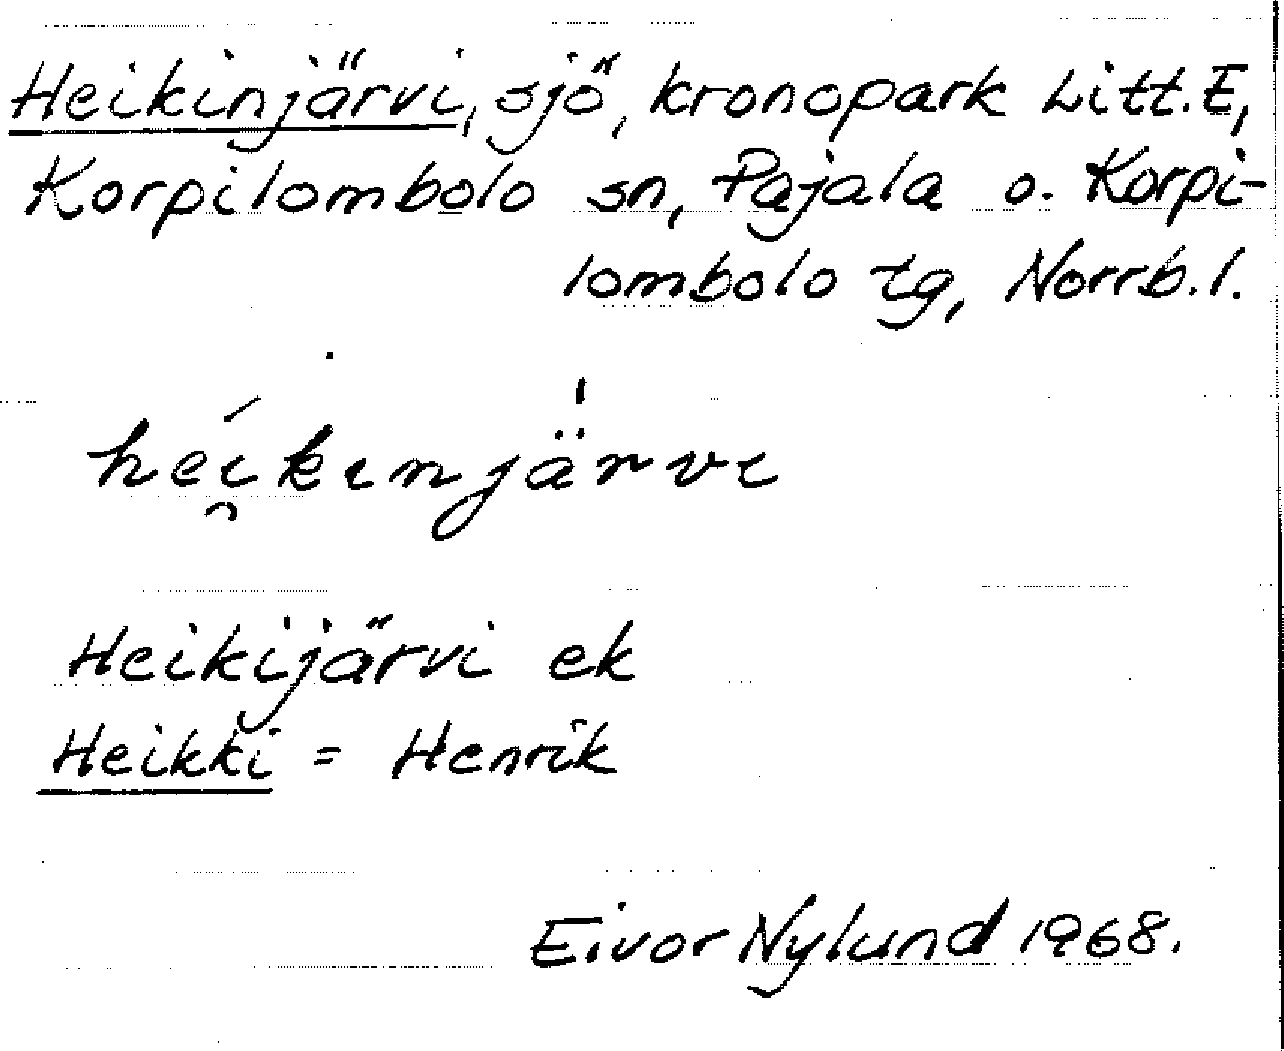 Heikinjärvi, sjö, kronopark Litt. E,
Korpilombolo sn, Pajala o. Korpi-
lombolo tg, Norrb. l.
hei̯kinjärvi
Heikijärvi ek
Heikki = Henrik
Eivor Nylund 1968.